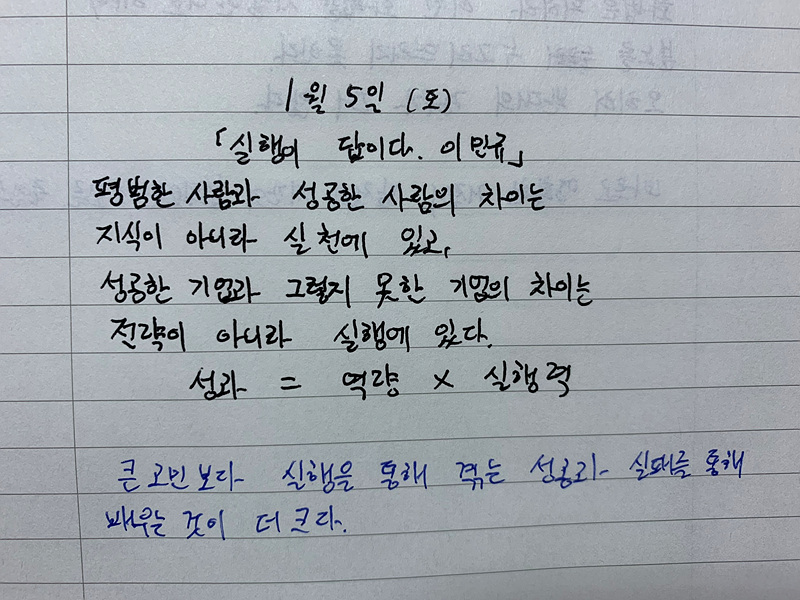 1월 5일 (토)
「실행이 답이다. 이민규」
평범한 사람과 성공한 사람의 차이는
지식이 아니라 실천에 있고,
성공한 기업과 그렇지 못한 기업의 차이는
전략이 아니라 실행에 있다.
성과 = 역량 × 실행력
큰 고민보다 실행을 통해 겪는 성공과 실패를 통해
배우는 것이 더 크다.